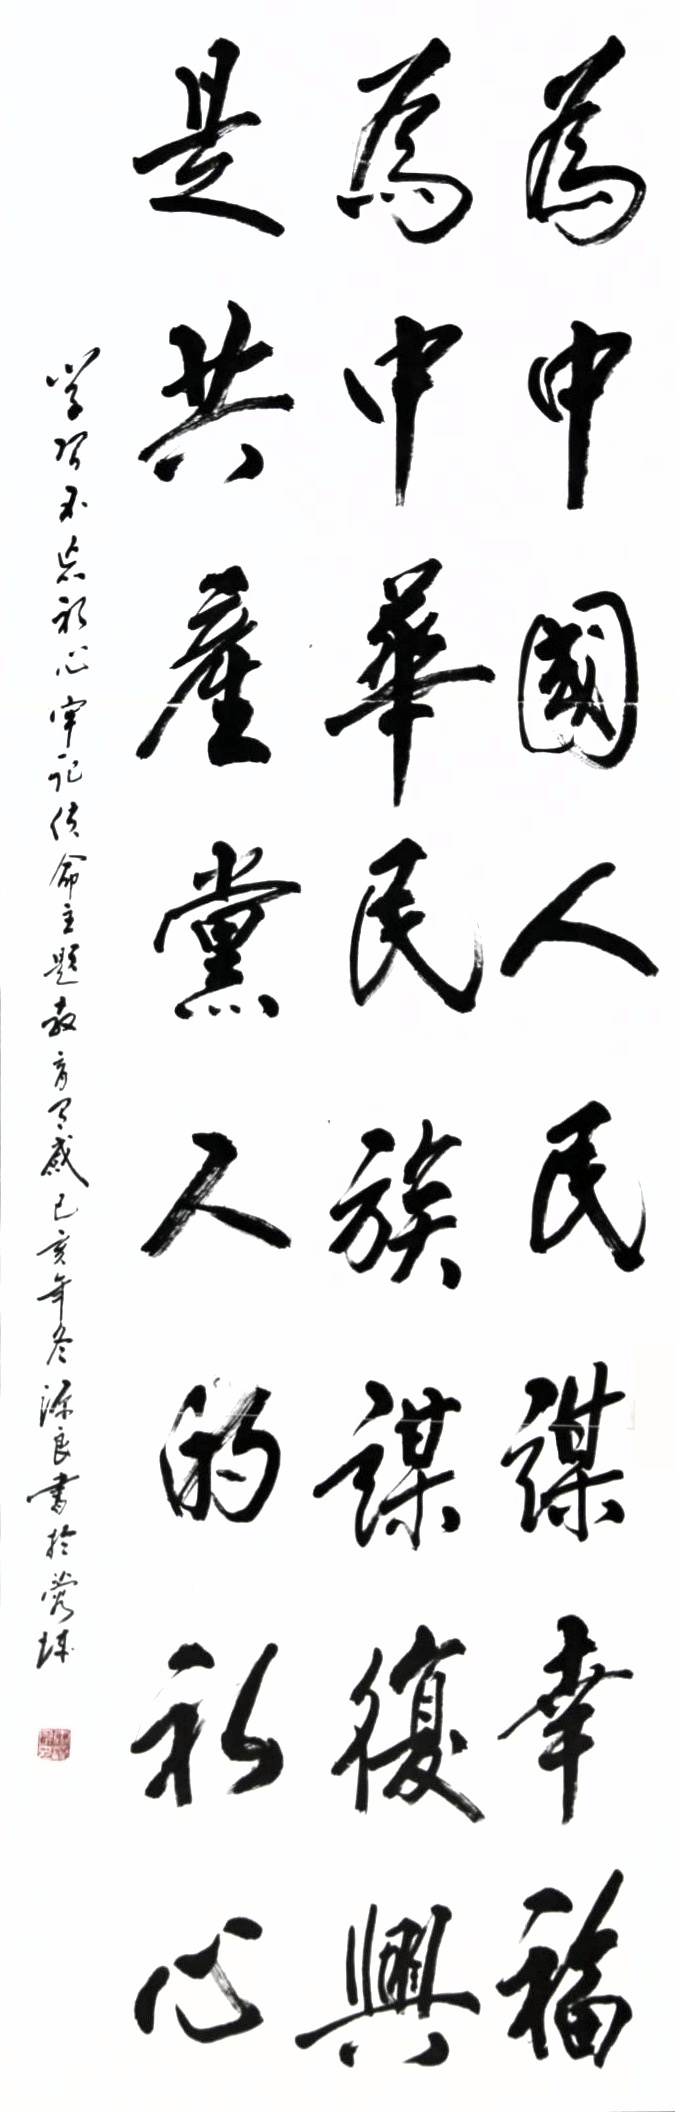 為中國人民謀幸福
為中華民族謀復興
是共產黨人的初心
学习不忘初心牢记使命主题教育有感己亥年冬源良書於鶯城